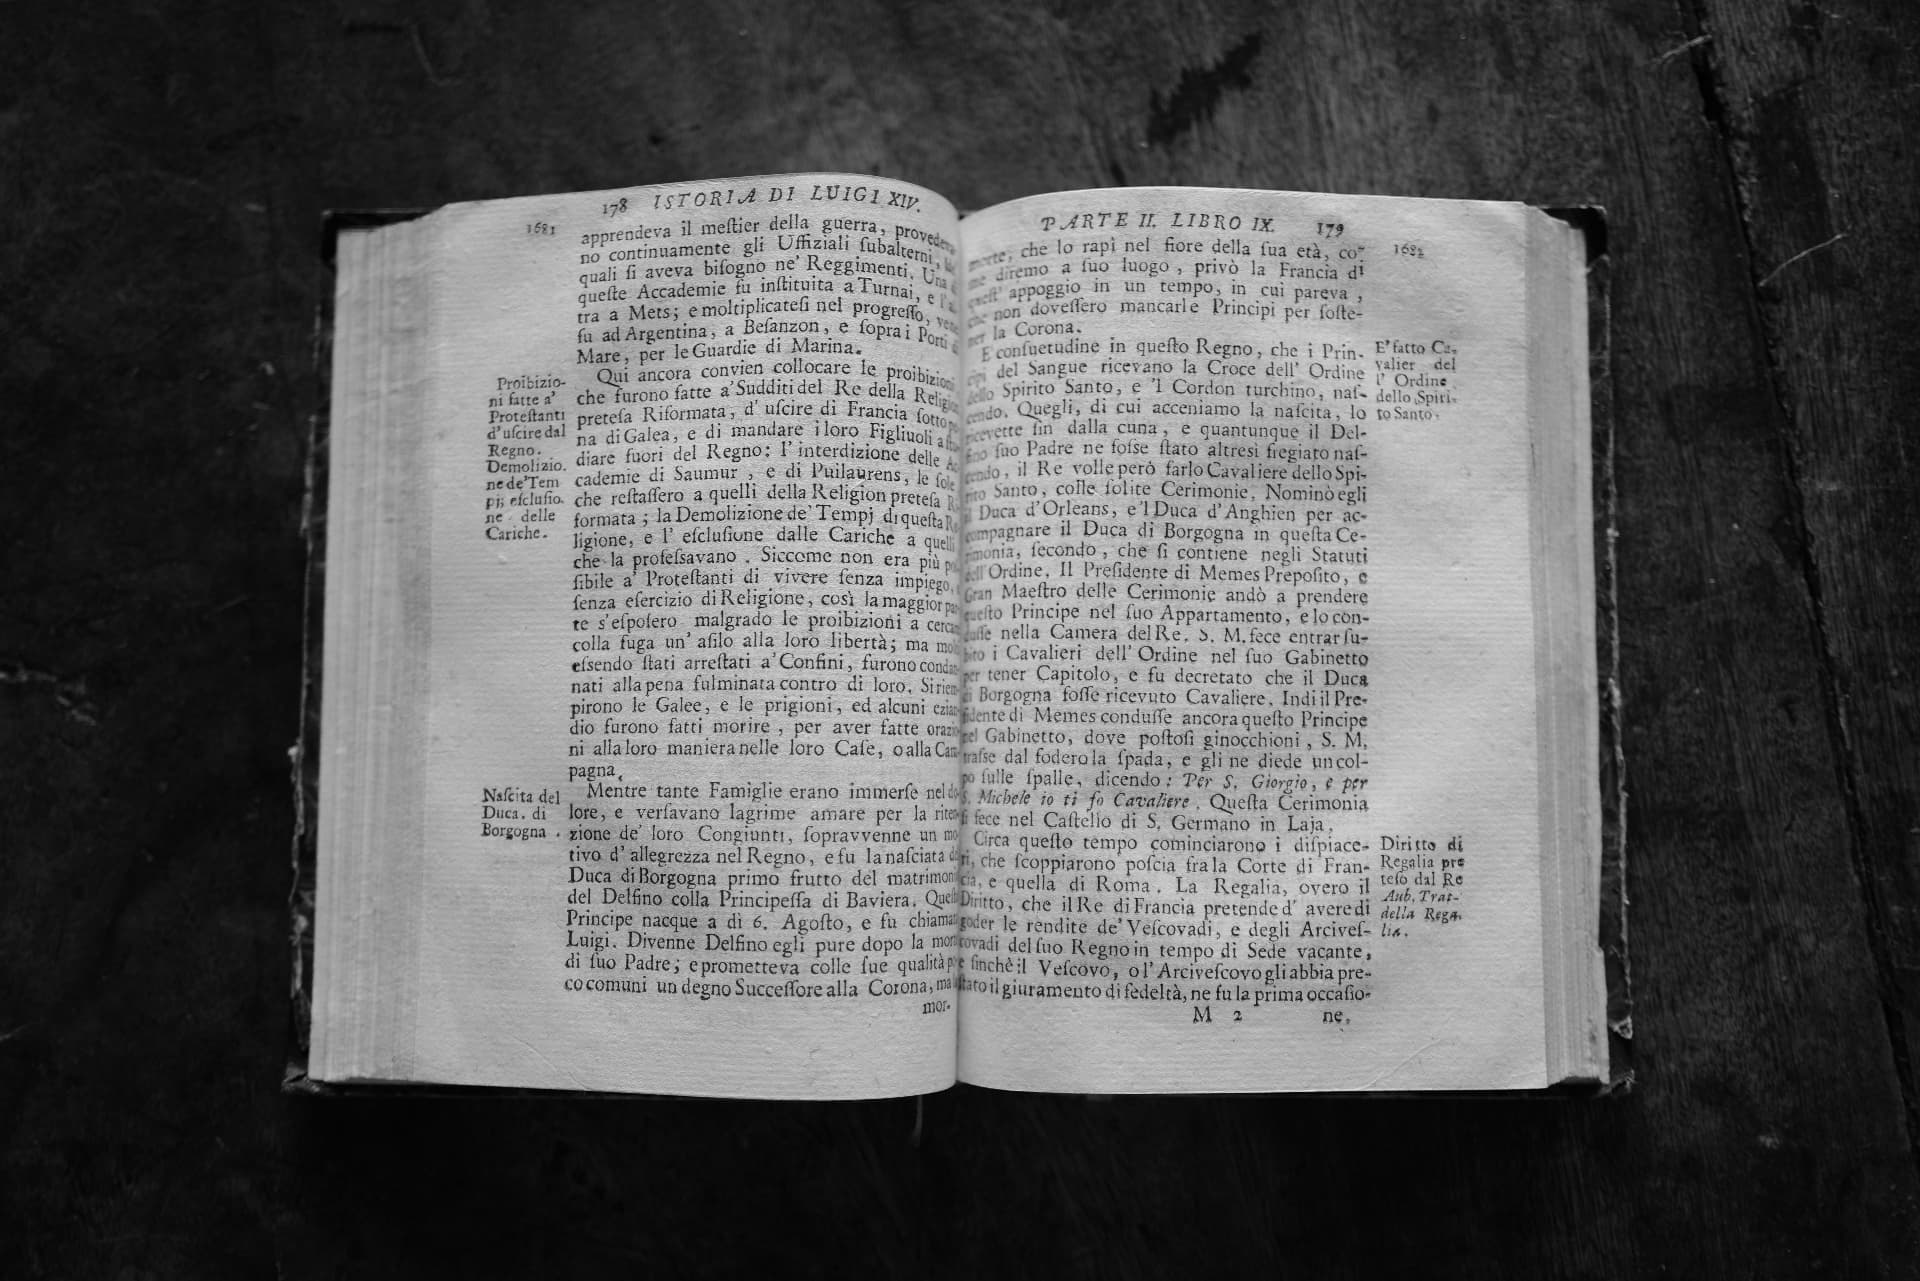 178 ISTORIA DI LUIGI XIV.
1681
apprendeva il meſtier della guerra,
no continuamente gli Uffiziali ſubalterni,
quali ſi aveva biſogno ne' Reggimenti. Una
queſte Accademie fu inſtituita a Turnai, e
tra a Mets; e moltiplicateſi nel progreſſo,
fu ad Argentina, a Beſanzon, e ſopra i Porti
Mare, per le Guardie di Marina.
Qui ancora convien collocare le proibizioni
che furono fatte a' Sudditi del Re della
preteſa Riformata, d' uſcire di Francia ſotto
na di Galea, e di mandare i loro Figliuoli a
diare fuori del Regno: l' interdizione delle
cademie di Saumur, e di Puilaurens, le ſole
che reſtaſſero a quelli della Religion preteſa
formata; la Demolizione de' Tempj di queſta
ligione, e l' eſcluſione dalle Cariche a quelli
che la profeſsavano. Siccome non era più
ſibile a' Proteſtanti di vivere ſenza impiego,
ſenza eſercizio di Religione, così la maggior
te s' eſpoſero malgrado le proibizioni a
colla fuga un' aſilo alla loro libertà; ma
eſsendo ſtati arreſtati a' Confini, furono
nati alla pena fulminata contro di loro.
pirono le Galee, e le prigioni, ed alcuni
dio furono fatti morire, per aver fatte
ni alla loro maniera nelle loro Caſe, o alla
pagna.
Mentre tante Famiglie erano immerſe nel
lore, e verſavano lagrime amare per la
zione de' loro Congiunti, ſopravvenne un
tivo d' allegrezza nel Regno, e fu la naſciata
Duca di Borgogna primo frutto del
del Delfino colla Principeſſa di Baviera.
Principe nacque a dì 6. Agoſto, e fu
Luigi. Divenne Delfino egli pure dopo la
di ſuo Padre; e prometteva colle ſue qualità
co comuni un degno Succeſſore alla Corona, ma
mor-
Proibizio-
ni fatte a'
Proteſtanti
d'uſcire dal
Regno.
Demolizio-
ne de'Tem
pj; eſcluſio-
ne delle
Cariche.
Naſcita del
Duca. di
Borgogna.
PARTE II. LIBRO IX. 179
1682
che lo rapì nel fiore della ſua età, co-
diremo a ſuo luogo, privò la Francia di
appoggio in un tempo, in cui pareva,
che non doveſſero mancarle Principi per ſoſte-
ner la Corona.
E' conſuetudine in queſto Regno, che i Prin-
del Sangue ricevano la Croce dell' Ordine
dello Spirito Santo, e 'l Cordon turchino, naſ-
cendo. Quegli, di cui acceniamo la naſcita, lo
ricevette fin dalla cuna, e quantunque il Del-
fino ſuo Padre ne foſse ſtato altresì fregiato naſ-
cendo, il Re volle però farlo Cavaliere dello Spi-
rito Santo, colle ſolite Cerimonie. Nominò egli
il Duca d'Orleans, e'l Duca d'Anghien per ac-
compagnare il Duca di Borgogna in queſta Ce-
rimonia, ſecondo, che ſi contiene negli Statuti
dell'Ordine. Il Preſidente di Memes Prepoſito, e
Gran Maeſtro delle Cerimonie andò a prendere
queſto Principe nel ſuo Appartamento, e lo con-
duſſe nella Camera del Re. S. M. fece entrar ſu-
bito i Cavalieri dell' Ordine nel ſuo Gabinetto
per tener Capitolo, e fu decretato che il Duca
di Borgogna foſſe ricevuto Cavaliere. Indi il Pre-
ſidente di Memes conduſſe ancora queſto Principe
nel Gabinetto, dove poſtoſi ginocchioni, S. M.
traſse dal fodero la ſpada, e gli ne diede un col-
po ſulle ſpalle, dicendo: Per S. Giorgio, e per
S. Michele io ti fo Cavaliere. Queſta Cerimonia
ſi fece nel Caſtello di S. Germano in Laja.
Circa queſto tempo cominciarono i diſpiace-
ri, che ſcoppiarono poſcia fra la Corte di Fran-
cia, e quella di Roma. La Regalia, overo il
Diritto, che il Re di Francia pretende d' avere di
goder le rendite de' Veſcovadi, e degli Arciveſ-
covadi del ſuo Regno in tempo di Sede vacante,
e finchè il Veſcovo, o l'Arciveſcovo gli abbia pre-
ſtato il giuramento di fedeltà, ne fu la prima occaſio-
M 2 ne,
E' fatto Ca-
valier del
l' Ordine
dello Spiri-
to Santo.
Diritto di
Regalia pre
teſo dal Re
Aub. Trat-
della Rega-
lia.